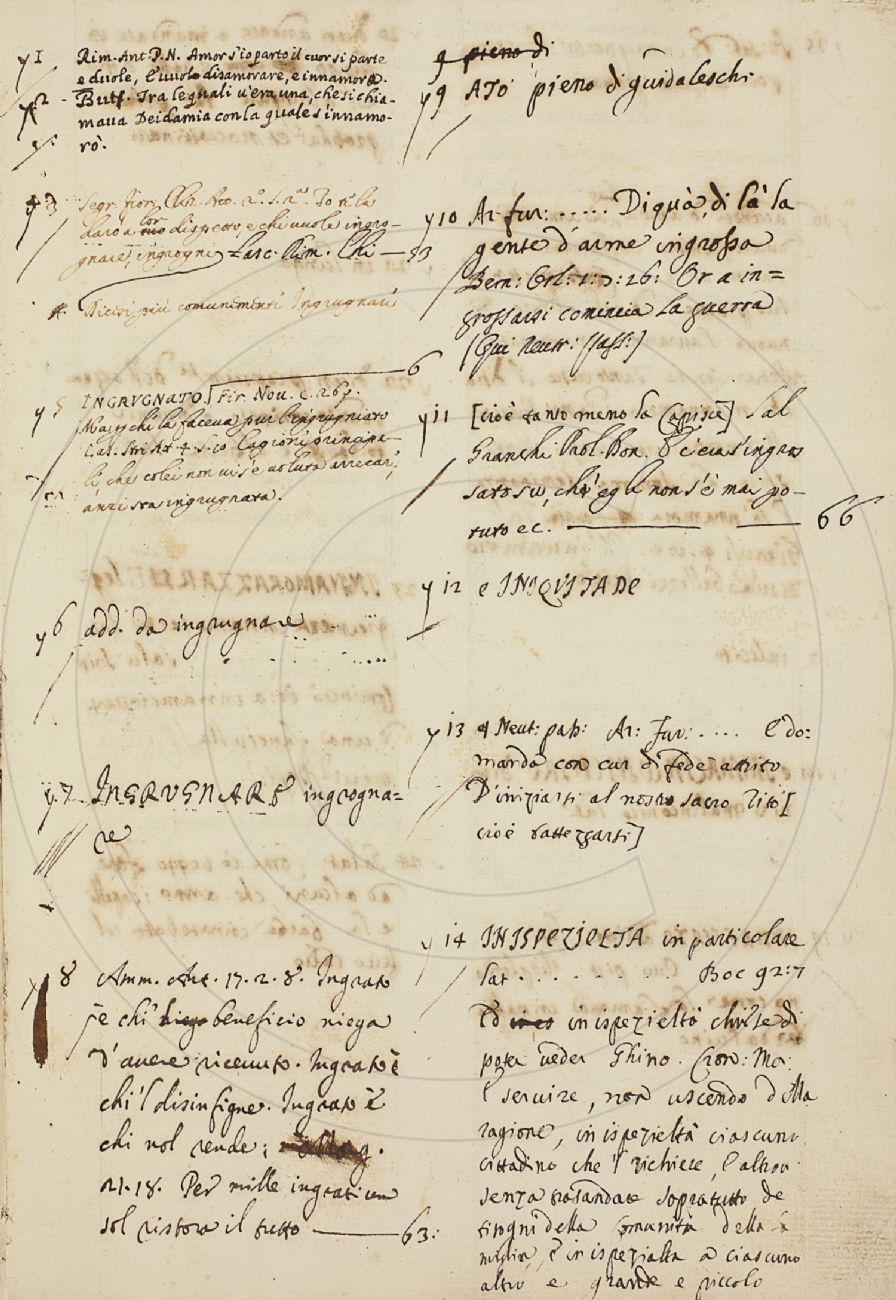 y 1 Rim. Ant. P. N. Amor s'io parto il cuor si parte
e duole, E vuol disamorare, e innamora.
y 2 - But. Tra le quali v'era una, che si chia-
maua Deidamia con la quale s'innamo-
rò.
y 3 Segr. Fior.
dispetto, e chi uuole ingro-
gnare, ingrogni Lasc. Rim.
più comunemente Ingrugnati
6
y 5 INGRVGNATO. Fir. Nou. c. 267.
la faceua piu l'ingrugniato
4. S. 10 Cagioni principa-
li, che colei non ui s'è uoluta arrecar,
anzi sta ingrugnata.
y 6 add. da ingrugnare
y. 7. INGRVGNARE ingrogna=
re
y 8 Amm. Ant. 17. 2. 8. Ingrato
è chi beneficio niega
d'auere riceuuto. Ingrato è
chi 'l disinfigne. Ingrato è
chi nol rende;
21. 18. Per mille ingrati un
sol ristora il tutto — 63:
9 pieno di
y 9 ATO pieno di guidaleschi
y 10 Ar. fur: ..... Di quà, di là la
gente d'arme ingrossa
Bern: Orl: 1: 26: Or a in=
grossarsi comincia la guerra
[Qui Neutr: pass:]
y 11 [cioè tanto meno la capisce] Sal
Granchi E c'ecia s'ingros
sato su, ch'egli non s'è mai po-
tuto ec. — 66
y 12 e INIQVITADE
y 13 & Neut: pass: Ar: Fur: .... E do:
manda con cur di fede attrito
D'iniziarsi al nostro sacro rito [
cioè battezzarsi]
y 14 INISPEZIELTA in particolare
Lat. . . . . . . . . Boc 92:7
Ed in ispezieltà chiese di
poter ueder Ghino. Cron: Mor:
E seruire, non uscendo della
ragione, in ispezieltà ciascuno
cittadino che 'l richiese, E altroue
senza trasandare sopratutto de
bisogni della Comunità della
in ispezialta a ciascuno
altri e grande e piccolo